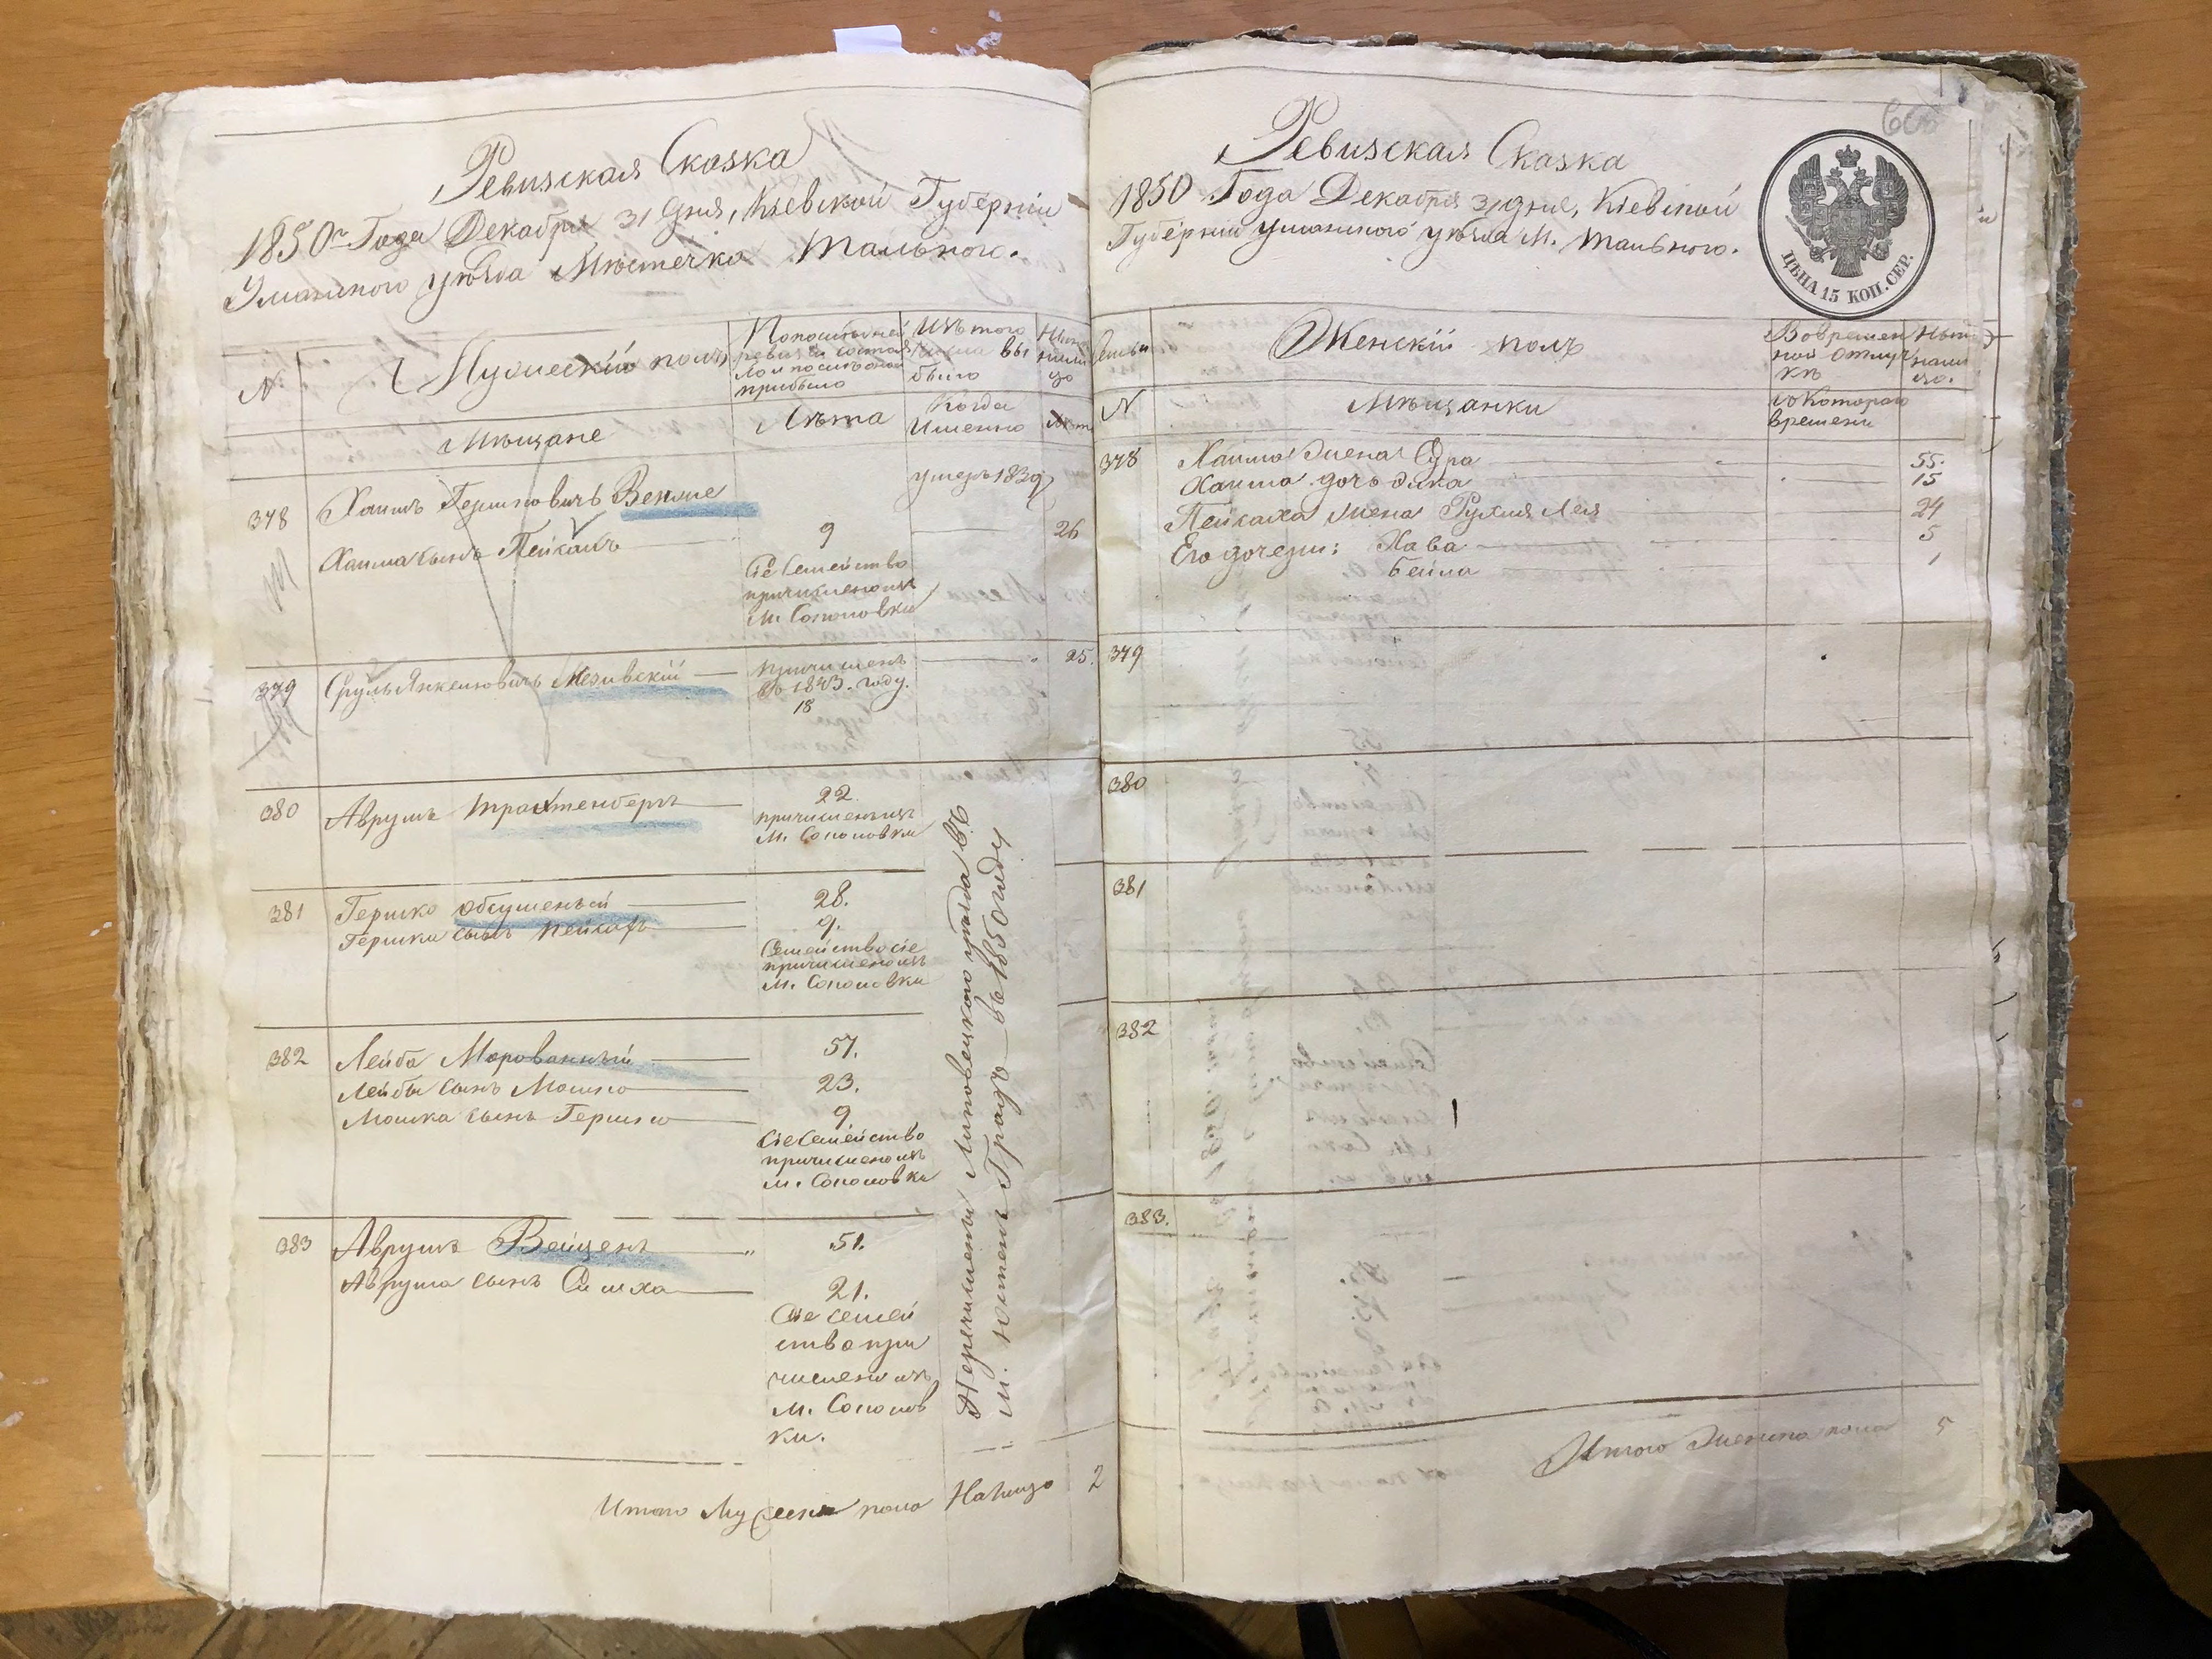 Ревизская Сказка
1850го Года Декабря 31 дня, Кіевской Губерніи
Уманского уѣзда Мѣстечка Тального.
№
Мужескій полъ
По последней ревизіи состояло и после оной прибыло
Изъ того числа выбыло
Ныне на лицо
Мѣщане
Лѣта
Когда Именно
Лѣта
378
Хаимъ Гершковичъ
умеръ 1839
Хаима сынъ Пейсахъ
9
26
Сіе Семейство
причислено изъ
М. Соколовки
379
Сруль Янкелювичъ Мезивскій
причисленъ
въ 1843. году.
18
25.
380
Аврумъ Трахтенбергъ
22
причисленъ изъ
М. Соколовки
381
Гершко Обсушеный
28.
Гершка сынъ Пейсахъ
9.
Семейство сіе
причислено изъ
М. Соколовки
382
Лейба Морованый
57.
Лейбы Сынъ Мошко
23.
Мошка сынъ Гершко
9.
Сіе Семейство
причислено изъ
М. Соколовки
383
Аврумъ Вейценъ
51.
Аврума сынъ Симха
21.
Сіе Семей
ство при
числено изъ
М. Соколов
ки.
Перечислены Липовецкого уѣзда въ
М. Юстенъ Градъ въ 1850 году
Итого Мужеска пола На лицо 2
Ревизская Сказка
1850 Года Декабря 31 дня, Кіевской
Губерніи Уманского уѣзда М. Тального.
ЦѢНА 15 КОП. СЕР.
Семьи
Женскій полъ
Во времен
ной отлуч
кѣ
Ныне
на ли
цо.
№
Мѣщанки
Съ Котораго
времени
378
Хаима жена Сура
55.
Хаима дочь
15
Пейсаха жена Рухля Лея
24
Его дочери: Хава
5
Бейла
1
379
380
381
382
383.
Итого Женска пола 5